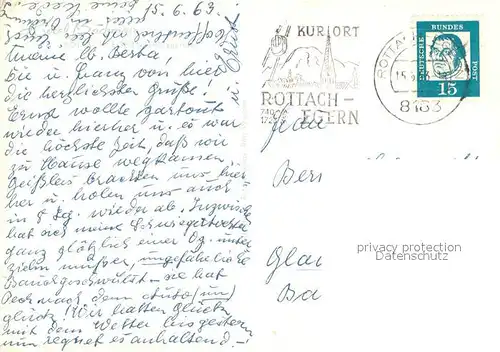 15. 6. 63.
Meine lb. Berta
Sie u. Franz von hier
die herzlichsten Grüße!
Ernst wollte partout
wieder hierher u. es war
die höchste Zeit, daß wir
zu Hause wegkamen.
brachten uns hier-
her u. holen uns auch
in 8 Tg. wieder ab. Inzwischen
hat sich meine Schwiegertochter
ganz plötzlich einer Op. unter
ziehn müssen, ungefährliche
Bauchgeschwulst – sie hat
Pech nach dem Auto(un)
glück! Wir hatten Glück
mit dem Wetter bis gestern
nun regnet es anhaltend. –
u. Ernst
KURORT
ROTTACH–
EGERN
ROTTA
15.
8183
DEUTSCHE
BUNDES
POST
15
Frau
Ber
Gla
Ba
privacy protection
Copyright